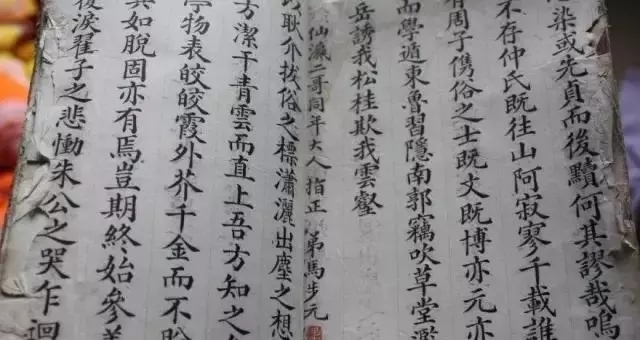 染或先貞而後黷何其謬哉嗚
不存仲氏既往山阿寂寥千載誰
有周子儁俗之士既文既博亦元亦
而學遁東魯習隱南郭竊吹草堂濫
岳誘我松桂欺我雲壑
仙瀛二哥同年大人 指正 弟馬步元
以耿介拔俗之標瀟灑出塵之想
方潔干青雲而直上吾方知之
物表皎皎霞外芥千金而不盼
其如脫固亦有焉豈期終始參差
後淚翟子之悲慟朱公之哭乍迴